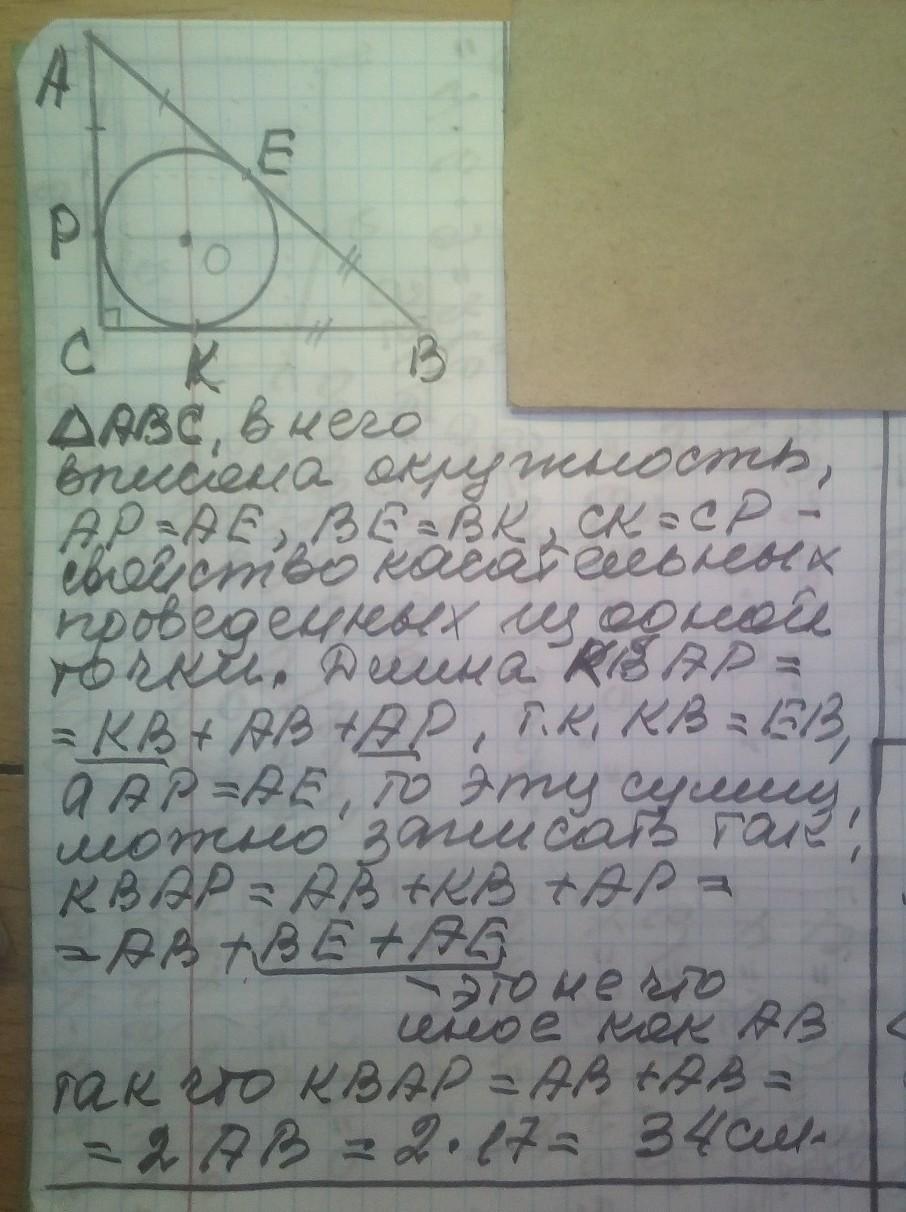 A
E
P
O
C
K
B
△ABC, в него
вписана окружность,
AP = AE, BE = BK, CK = CP -
свойство касательных
проведенных из одной
точки. Длина KBAP =
= KB + AB + AP, т.к. KB = EB,
а AP = AE, то эту сумму
можно записать так:
KBAP = AB + KB + AP =
= AB + BE + AE
- это не что
иное как AB
так что KBAP = AB + AB =
= 2 AB = 2 · 17 = 34 см.